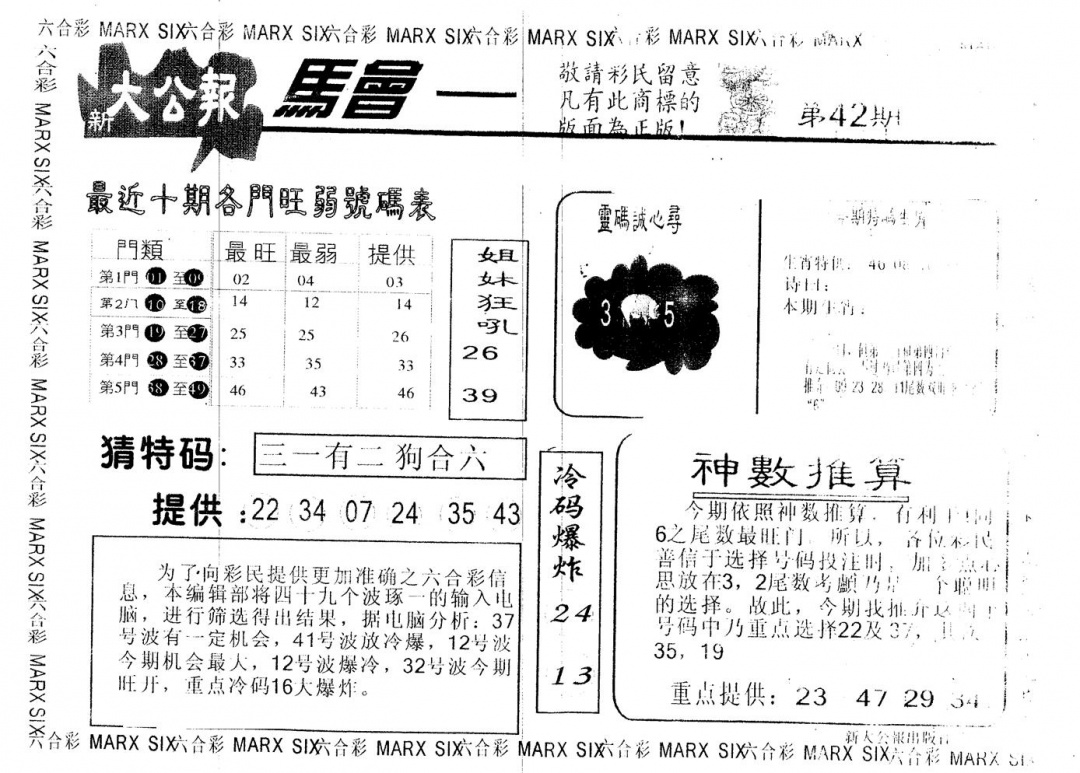 六合彩 MARX SIX六合彩 MARX SIX六合彩 MARX SIX六合彩 MARX SIX六合彩 MARX SIX六合彩 MARX
六合彩 MARX SIX六合彩 MARX SIX六合彩 MARX SIX六合彩 MARX SIX六合彩 MARX SIX
新大公報
馬會一
敬請彩民留意
凡有此商標的
版面為正版!
第42期
最近十期各門旺弱號碼表
門類 最旺 最弱 提供
第1門 01 至09 02 04 03
第2门 10 至18 14 12 14
第3門 19 至27 25 25 26
第4門 28 至37 33 35 33
第5門 38 至49 46 43 46
姐
妹
狂
吼
26
39
靈碼誠心尋
3 5
期特碼生肖
生肖特供: 46 08
诗曰:
本期生肖:
推 09 23 28 尾数
“6”
猜特码: 三一有二狗合六
提供:22 34 07 24 35 43
为了向彩民提供更加准确之六合彩信
息，本编辑部将四十九个波琢一的输入电
脑，进行筛选得出结果，据电脑分析：37
号波有一定机会，41号波放冷爆，12号波
今期机会最大，12号波爆冷，32号波今期
旺开，重点冷码16大爆炸。
冷
码
爆
炸
24
13
神數推算
今期依照神数推算，有利于
6之尾数最旺门。所以，各位彩民
善信于选择号码投注时，加
思放在3，2尾数考顱乃是一个聪明
的选择。故此，今期找推
号码中乃重点选择22及37，
35，19
重点提供：23 47 29 34
新大公報出版社
六合彩 MARX SIX六合彩 MARX SIX六合彩 MARX SIX六合彩 MARX SIX六合彩 MARX SIX六合彩 MARX SIX六合彩 MARX SI